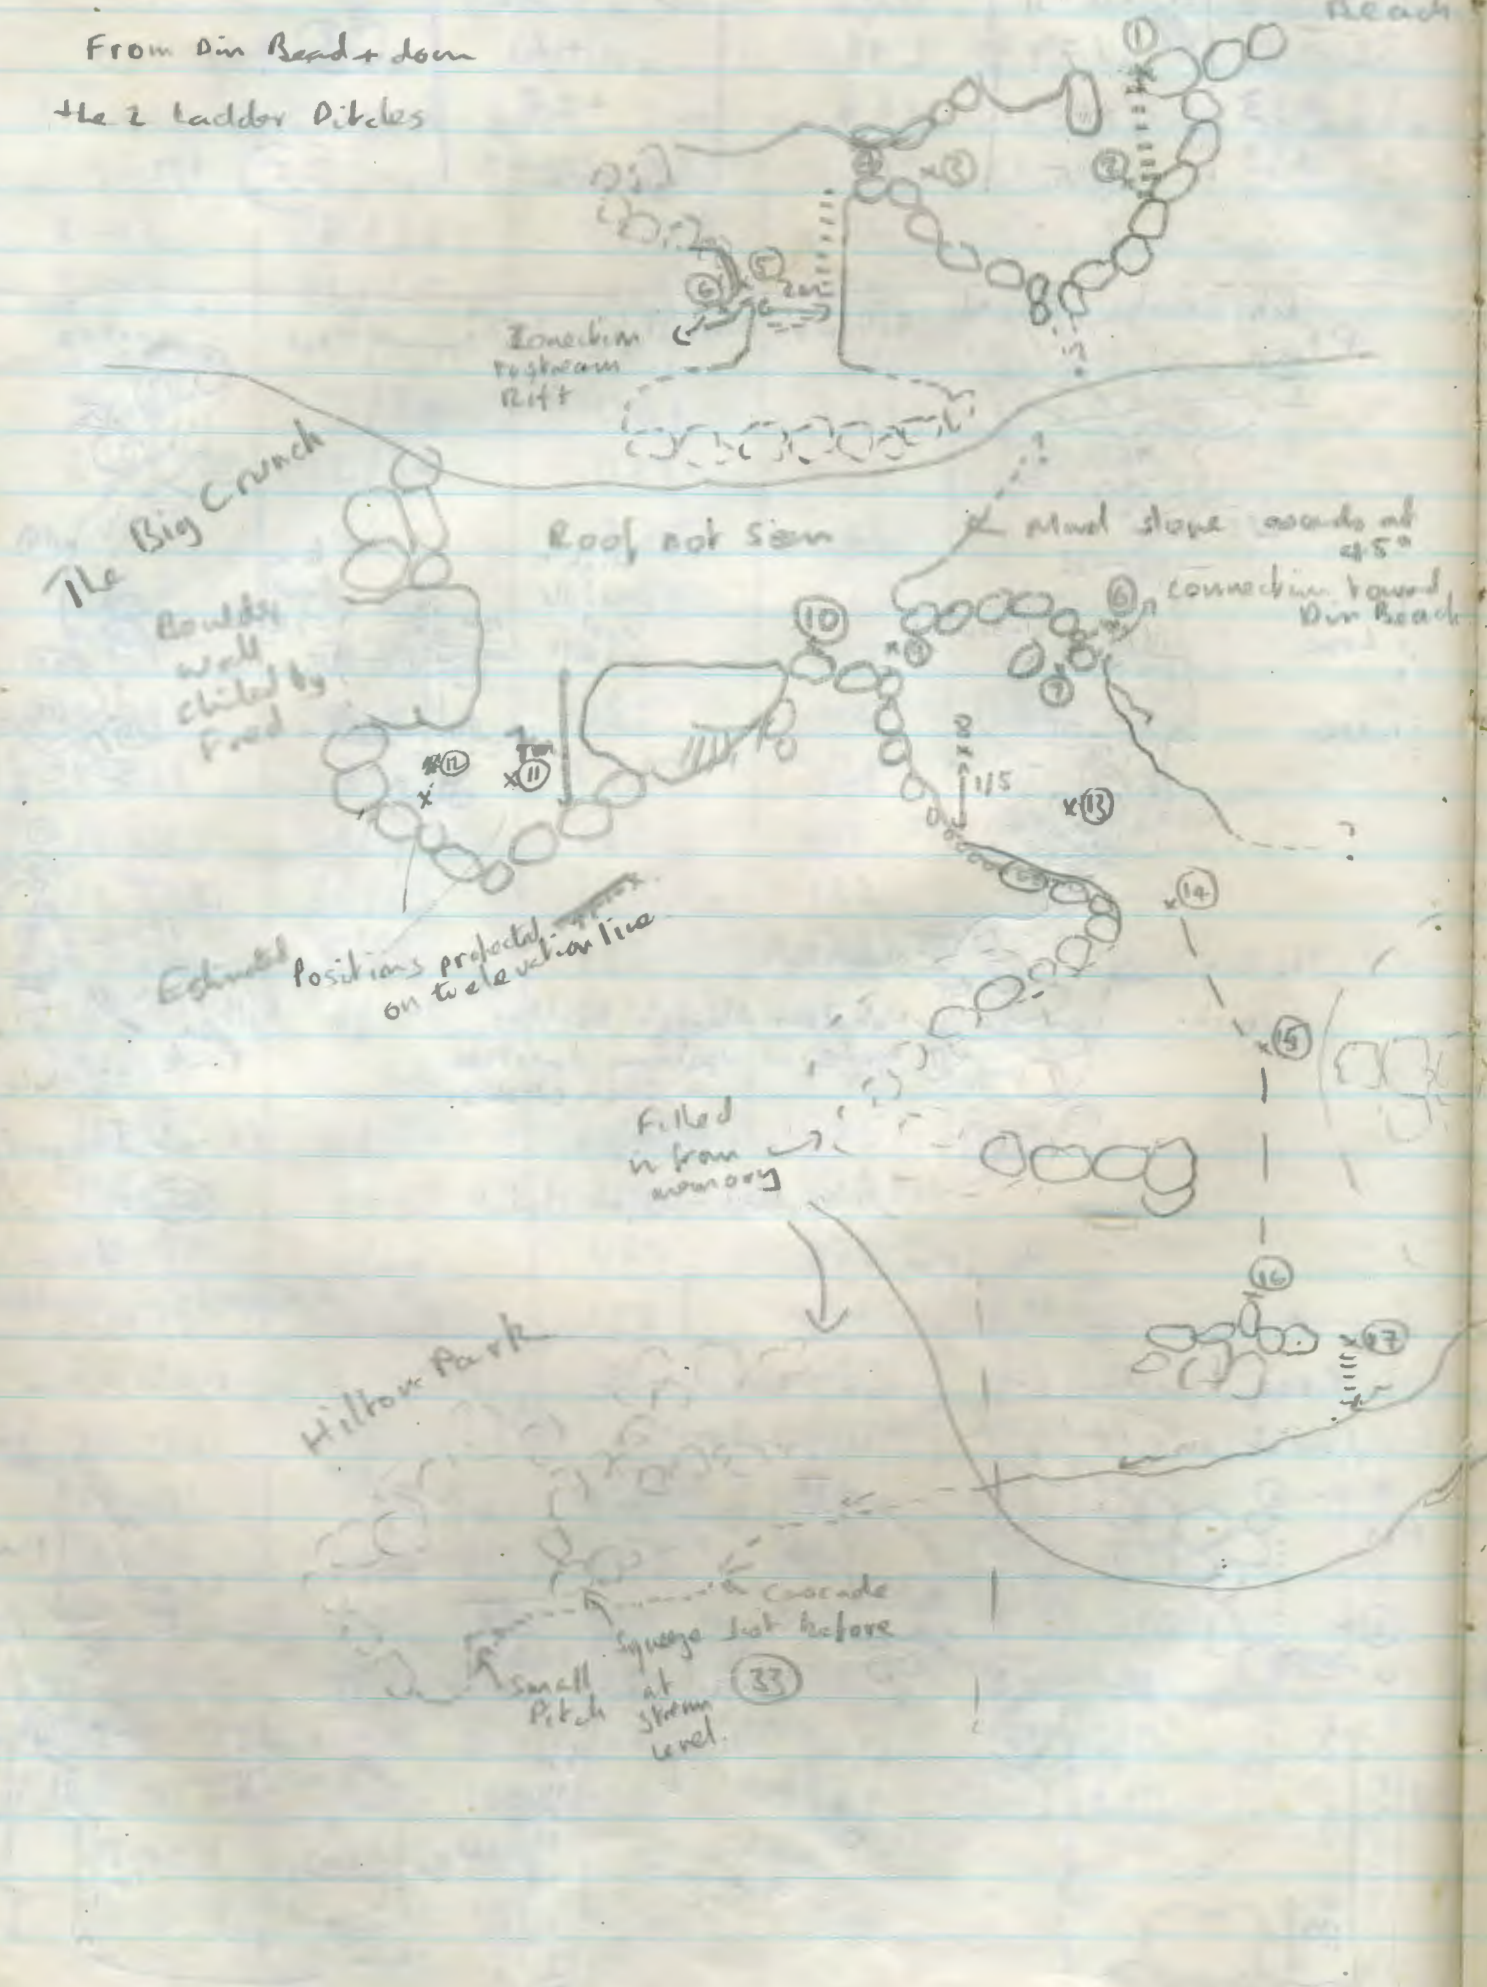 Beach
From Dim Bead + down
the 2 Ladder Pitches
1
2
3
4
5
6
2m
Conection
to stream
Rift
?
The Big Crunch
Roof not Seen
?
Mud slope ascends at
45°
6
connection toward
Dim Beach
Boulder
wall
climbed by
Fred
10
9
7
8
1/5
12
7m
11
x 13
?
14
Estimated Positions projected
on to elevation line
15
Filled
in from
memory
16
17
Hilton Park
Cascade
Squeeze just before
at
stream
level.
33
Small
Pitch